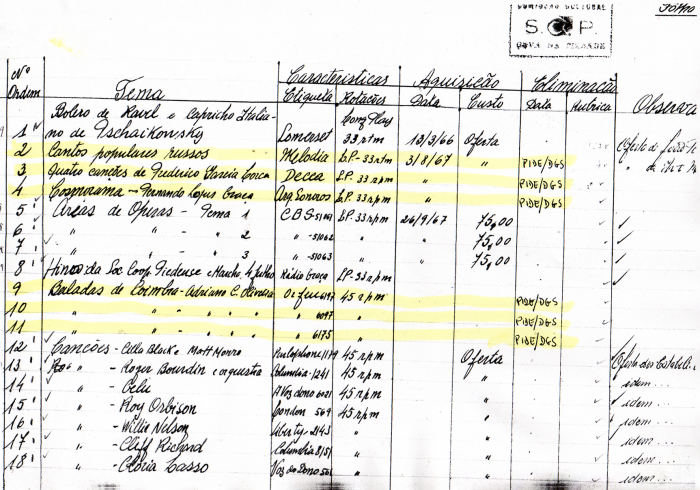 COMISSÃO CULTURAL
S. C. P.
COVA DA PIEDADE
Nº Ordem Tema Caracteristicas Aquisição Eliminação Observa
Etiqueta Rotações Data Custo Data Rubrica
Bolero de Ravel e Capricho Italia- Long Play
1 no de Tschaikowsky Somerset 33 rpm 13/3/66 Oferta Oferta de
2 Cantos populares russos Melodia L.P. 33 rpm 3/8/67 " PIDE/DGS "
3 Quatro canções de Frederico Garcia Lorca Decca L.P. 33 rpm PIDE/DGS
4 Cosmorama - Fernando Lopes Graça Arq. Sonoros L.P. 33 rpm PIDE/DGS
5 Áreas de Operas - Tema 1 C.B.S L.P. 33 rpm 26/9/67 75,00
6 " " - " 2 " -51062 " 75,00
7 " " - " 3 " -51063 " 75,00
8 Hino da Soc. Coop. Piedense e Marcha 4 Julho Rádio Graça L.P. 33 rpm
9 Baladas de Coimbra - Adriano C. Oliveira Orfeu 45 rpm PIDE/DGS
10 " " " - " " " 6097 " PIDE/DGS
11 " " " - " " " 6175 " PIDE/DGS
12 Canções - Cilla Black e Matt Monro Parlophone 45 rpm Oferta Oferta dos
13 " - Roger Bourdin e orquestra Columbia-1241 45 rpm " idem...
14 " - Celu A Voz dono 45 rpm " idem...
15 " - Roy Orbison London 569 45 rpm " idem...
16 " - Willie Nelson Liberty-2143 " " idem...
17 " - Cliff Richard Columbia " " idem...
18 " - Gloria Lasso Voz do Dono " " idem...